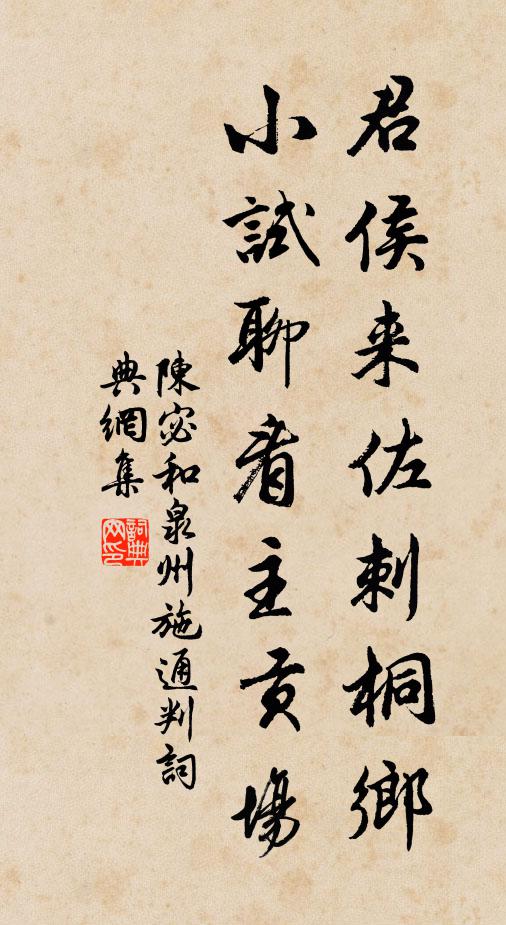 君侯来佐刺桐鄉
小試聊看主貢場
陳宓和泉州施通判詞
典網集
詞典网印